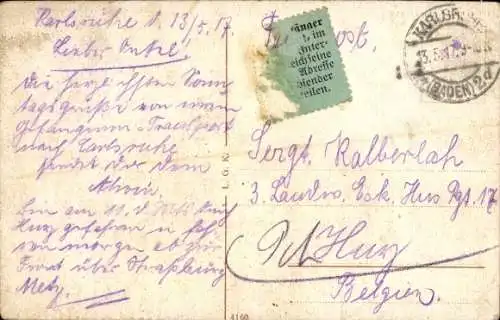 Karlsruhe d. 13/5. 17.
Lieber Onkel!
Die herzlichsten Sonn-
tagsgrüße von einem
Gefangenen-Transport
nach Carlsruhe
sendet dir dein
Bin am 10. d. Mts. durch
Huy gefahren u.
morgen ab zur
Front über Straßburg
Metz.
L.G.K.
4160
änger
im
Inter-
eichseine
Adresse
sender
eilen.
KARLSR
13.5.17.
(BADEN) 2
Sergt. Kalberlah
3. Landw. Esk. Hus. Rgt. 17
Huy
Belgien.